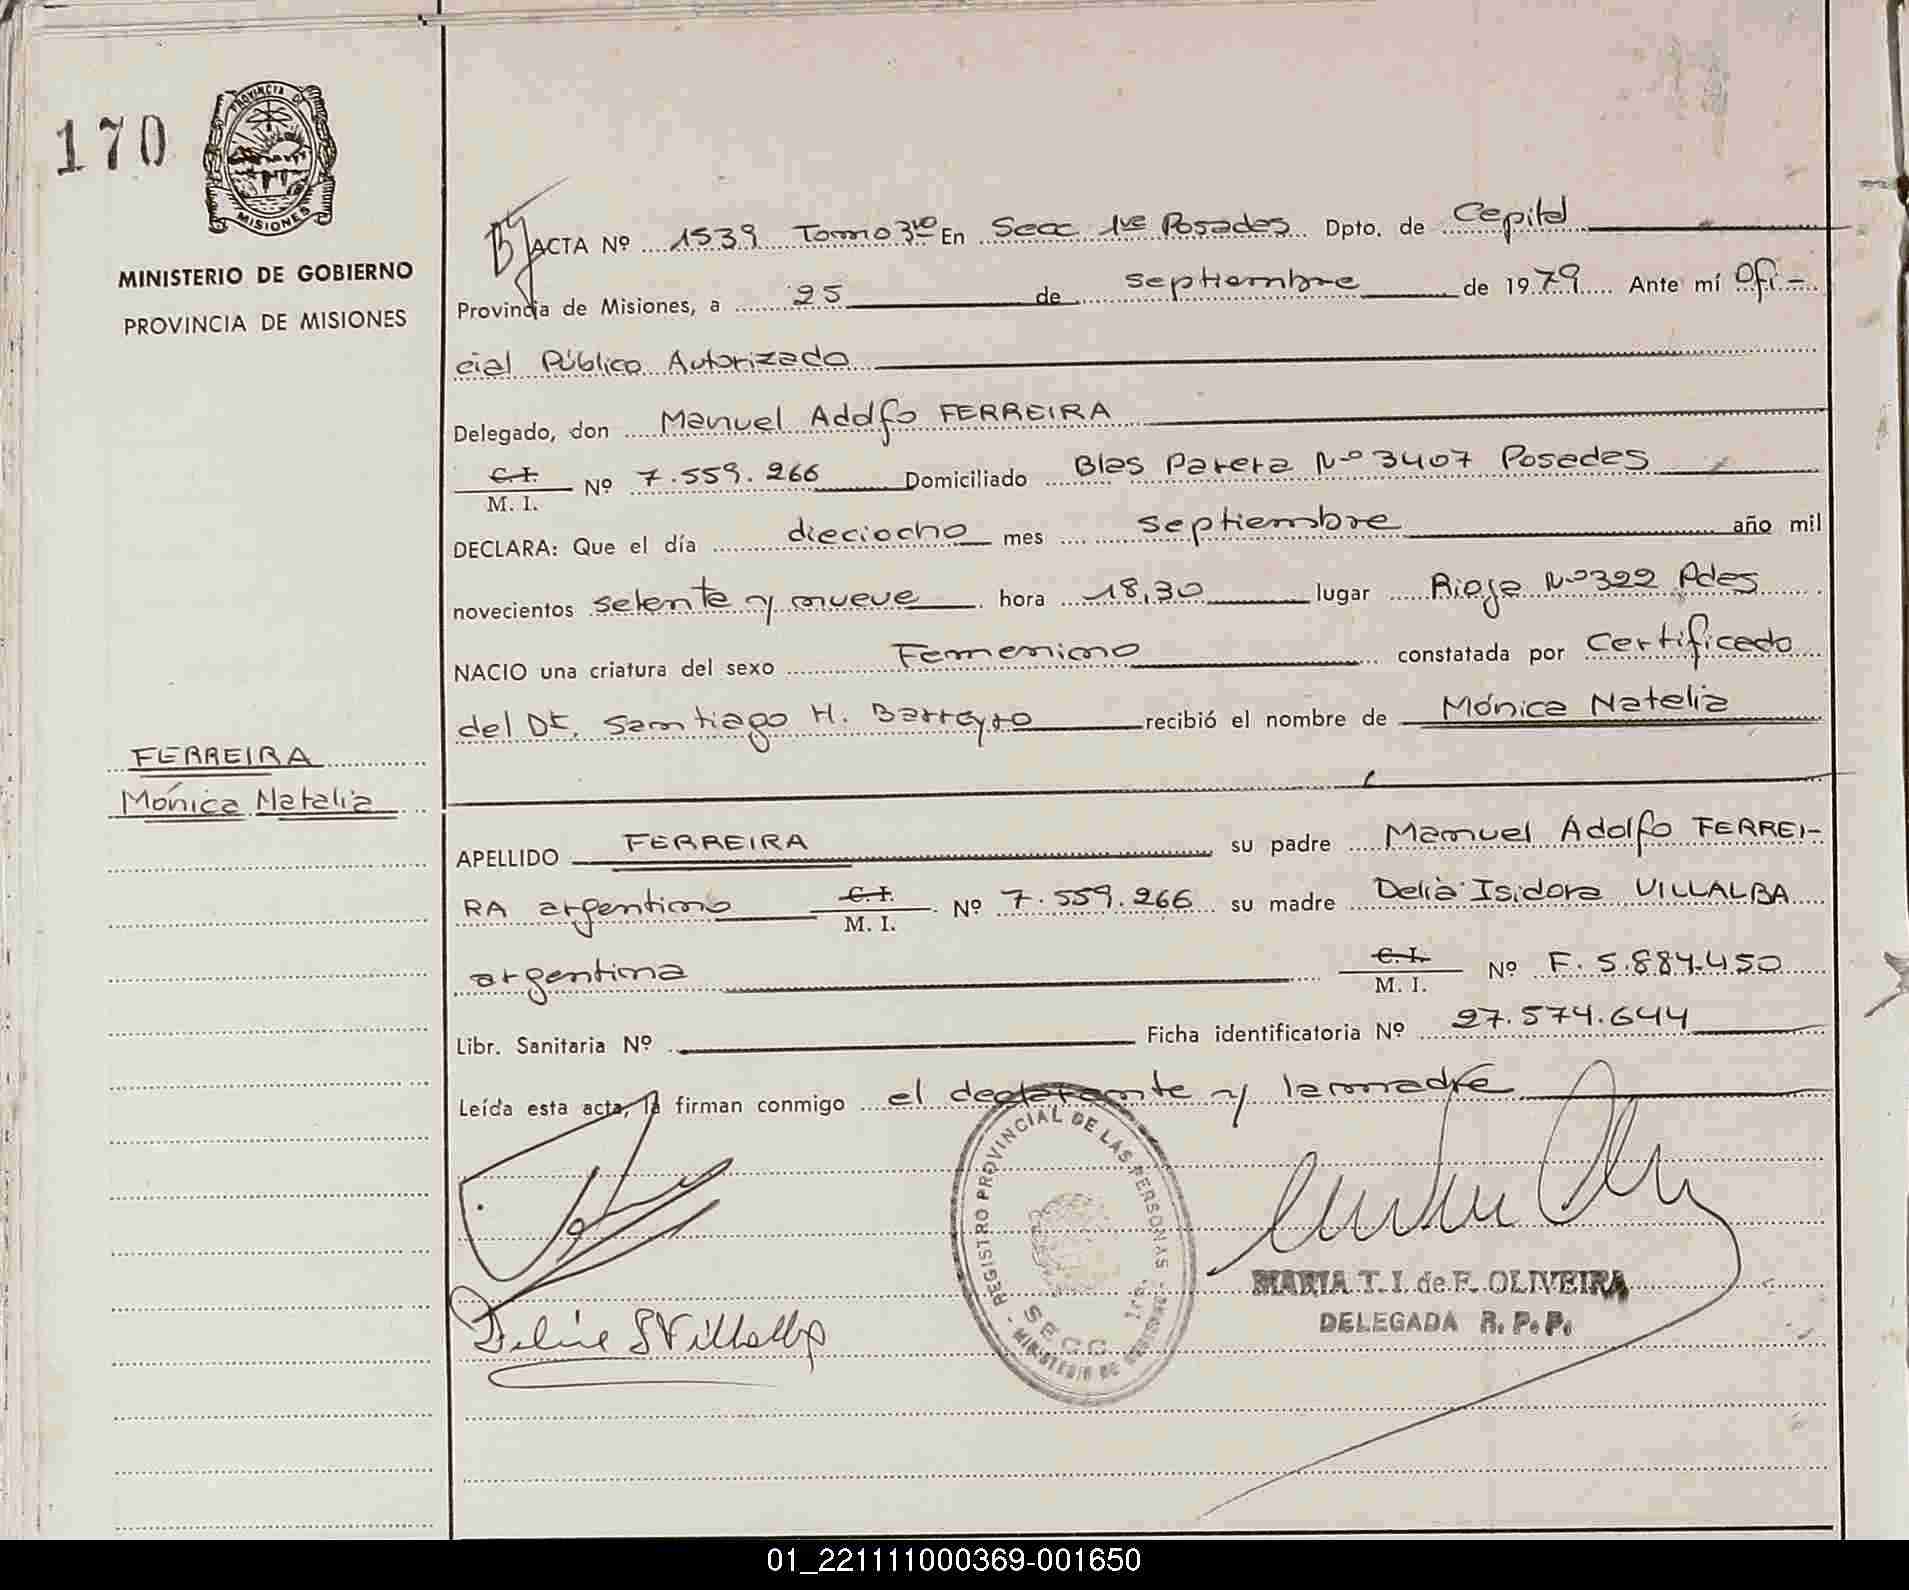 170
PROVINCIA DE
MISIONES
MINISTERIO DE GOBIERNO
PROVINCIA DE MISIONES
ACTA Nº 1539 Tomo 3ro En Secc 1ra Posadas Dpto. de Capital
Provincia de Misiones, a 25 de septiembre de 1979 Ante mí Ofi-
cial Público Autorizado
Delegado, don Manuel Adolfo FERREIRA
C.I.
M. I. Nº 7.559.266 Domiciliado Blas Parera Nº 3407 Posadas
DECLARA: Que el día dieciocho mes septiembre año mil
novecientos setenta y nueve hora 18,30 lugar Rioja Nº 322 Pdas
NACIO una criatura del sexo Femenino constatada por Certificado
del Dr. Santiago H. Barreyro recibió el nombre de Mónica Natalia
FERREIRA
Mónica Natalia
APELLIDO FERREIRA su padre Manuel Adolfo FERREI-
RA argentino C.I. M. I. Nº 7.559.266 su madre Delia Isidora VILLALBA
argentina C.I. M. I. Nº F. 5.884.450
Libr. Sanitaria Nº Ficha identificatoria Nº 27.574.644
Leída esta acta, la firman conmigo el declarante y la madre
REGISTRO PROVINCIAL DE LAS PERSONAS - MINISTERIO DE GOBIERNO
SECC. 1ra.
MARIA T. I. de F. OLIVEIRA
DELEGADA R. P. P.
Delia I Villalba
01_221111000369-001650